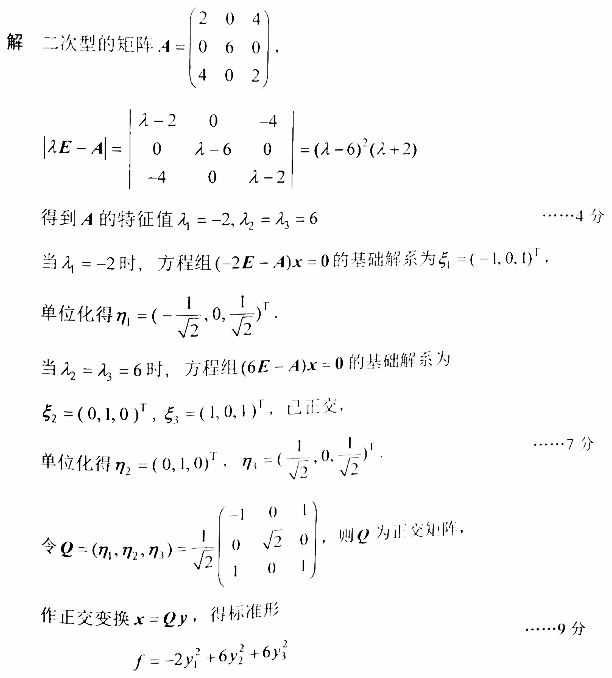 解 二次型的矩阵 A = ( 2 0 4 ; 0 6 0 ; 4 0 2 ),
|λE − A| = | λ−2 0 −4 ; 0 λ−6 0 ; −4 0 λ−2 | = (λ−6)²(λ+2)
得到 A 的特征值 λ₁ = −2, λ₂ = λ₃ = 6 ……4 分
当 λ₁ = −2 时, 方程组 (−2E − A)x = 0 的基础解系为 ξ₁ = (−1, 0, 1)ᵀ,
单位化得 η₁ = (−1/√2, 0, 1/√2)ᵀ.
当 λ₂ = λ₃ = 6 时, 方程组 (6E − A)x = 0 的基础解系为
ξ₂ = (0, 1, 0)ᵀ, ξ₃ = (1, 0, 1)ᵀ, 已正交,
单位化得 η₂ = (0, 1, 0)ᵀ, η₃ = (1/√2, 0, 1/√2)ᵀ. ……7 分
令 Q = (η₁, η₂, η₃) = 1/√2 ( −1 0 1 ; 0 √2 0 ; 1 0 1 ), 则 Q 为正交矩阵,
作正交变换 x = Qy, 得标准形
……9 分
f = −2y₁² + 6y₂² + 6y₃²